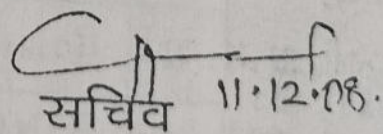 सचिव 11.12.08.